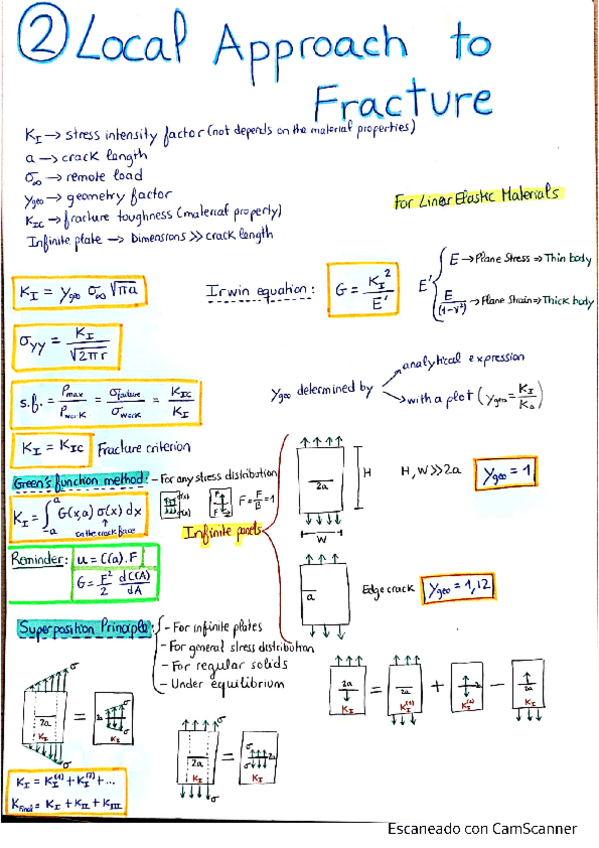 ② Local Approach to
Fracture
K_I → stress intensity factor (not depends on the material properties)
a → crack length
σ∞ → remote load
Y_geo → geometry factor
K_IC → fracture toughness (material property)
Infinite plate → Dimensions ≫ crack length
For Linear Elastic Materials
K_I = Y_geo σ∞ √πa
Irwin equation: G = K_I² / E'
E' { E → Plane Stress ⇒ Thin body
E/(1-ν²) → Plane Strain ⇒ Thick body
σ_yy = K_I / √2πr
s.f. = P_max / P_work = σ_failure / σ_work = K_IC / K_I
Y_geo determined by → analytical expression
→ with a plot (Y_geo = K_I / K_0)
K_I = K_IC Fracture criterion
Green's function method: - For any stress distribution
K_I = ∫_-a^a G(x,a) σ(x) dx
on the crack face
F = F/B = 1
Infinite panels
2a
H
W
H, W ≫ 2a
Y_geo = 1
a
Edge crack
Y_geo = 1,12
Reminder: u = C(a) · F
G = F²/2 dC(A)/dA
Superposition Principle: - For infinite plates
- For general stress distribution
- For regular solids
- Under equilibrium
σ
2a
K_I
σ
=
σ
K_I
2a
K_I
σ
=
σ
K_I
2a
K_I
=
2a
K_I^(1)
+
K_I^(2)
-
2a
K_I
K_I = K_I^(1) + K_I^(2) + ...
K_final = K_I + K_II + K_III
Escaneado con CamScanner